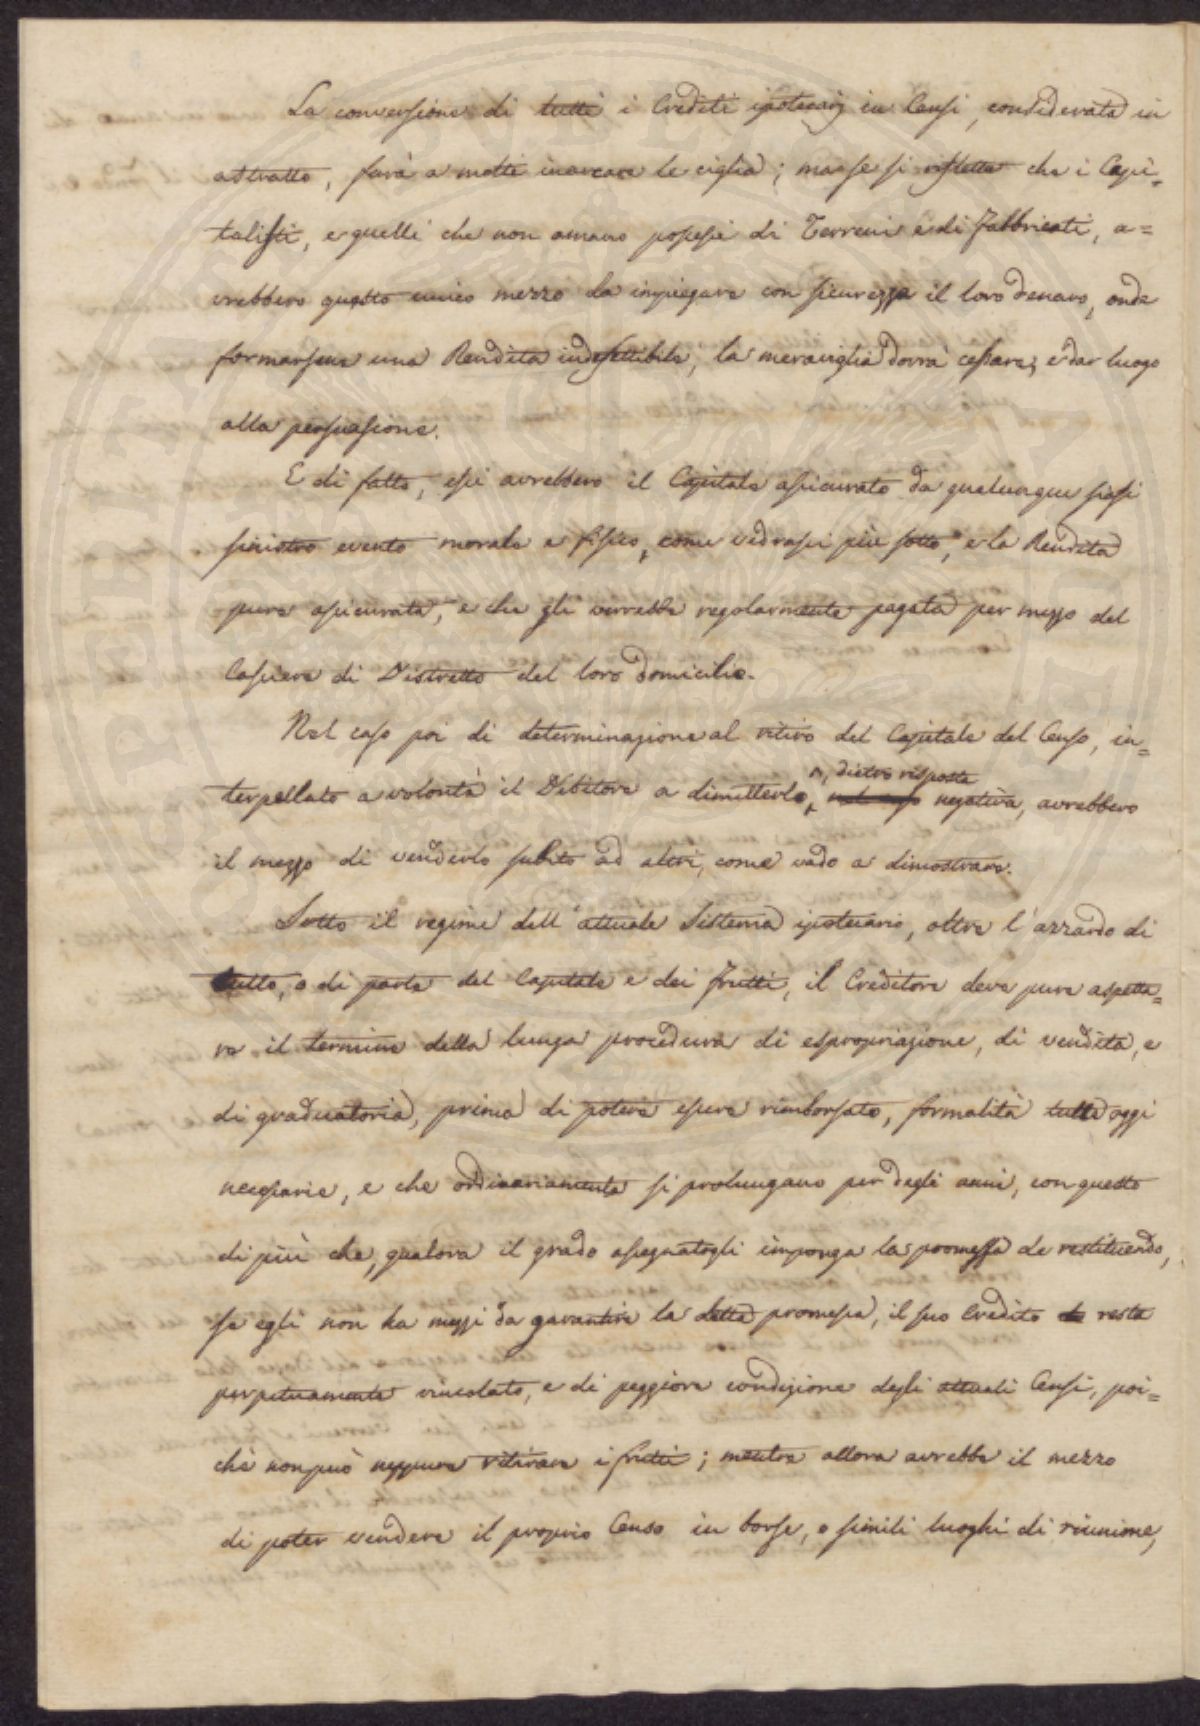 La conversione di tutti i Crediti ipotecarj in Censi, considerata in
astratto, farà a molti inarcare le ciglia; ma se si rifletta che i Capi=
talisti, e quelli che non amano possessi di Terreni e di Fabbricati, a=
vrebbero questo unico mezzo da impiegare con sicurezza il loro denaro, onde
formarsene una Rendita indefettibile, la meraviglia dovrà cessare, e dar luogo
alla persuasione.
E di fatto, essi avrebbero il Capitale assicurato da qualunque siasi
sinistro evento morale e fisico, come vedrassi più sotto, e la Rendita
pure assicurata, e che gli verrebbe regolarmente pagata per mezzo del
Cassiere di Distretto del loro domicilio.
Nel caso poi di determinazione al ritiro del Capitale del Censo, in=
terpellato a volontà il Debitore a dimitterlo, dietro risposta
nel caso negativa, avrebbero
il mezzo di venderlo subito ad altri, come vado a dimostrare.
Sotto il regime dell'attuale Sistema ipotecario, oltre l'azzardo di
tutto, o di parte del Capitale e dei frutti, il Creditore deve pure aspetta=
re il termine della lunga procedura di espropriazione, di vendita, e
di graduatoria, prima di potere essere rimborsato, formalità tutte oggi
necessarie, e che ordinariamente si prolungano per degli anni, con questo
di più che, qualora il grado assegnatogli imponga la promessa de restituendo,
se egli non ha mezzi da garantire la detta promessa, il suo Credito resta
perpetuamente vincolato, e di peggiore condizione degli attuali Censi, poi=
chè non può neppure ritirare i frutti; mentre allora avrebbe il mezzo
di poter vendere il proprio Censo in borse, o simili luoghi di riunione,